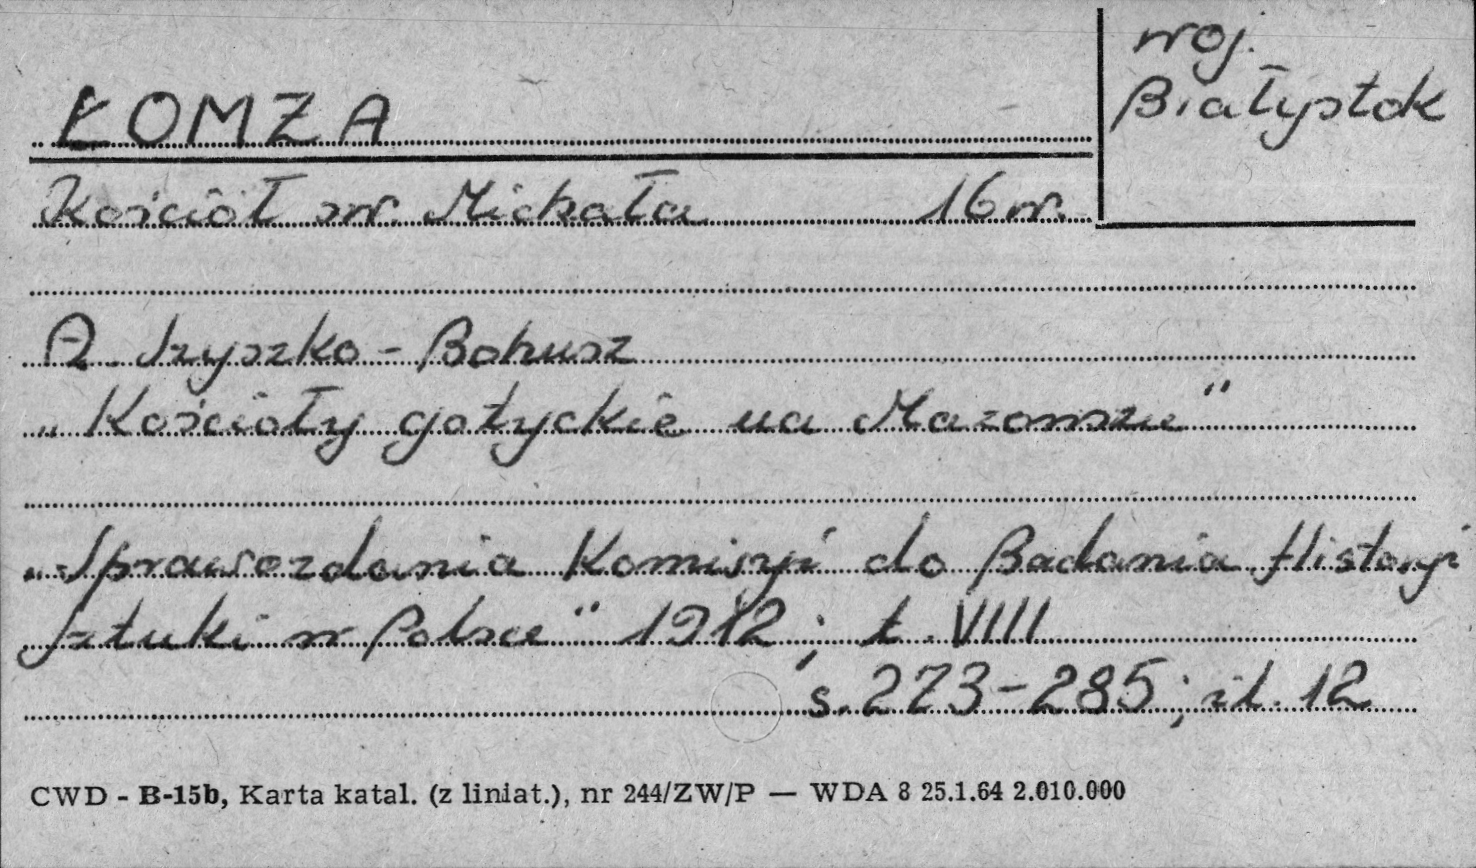 woj.
Białystok
ŁOMŻA
Kościół św. Michała 16 w.
A. Szyszko - Bohusz
„Kościoły gotyckie na Mazowszu"
„Sprawozdania Komisyi do Badania Historyi
Sztuki w Polsce" 1912; t. VIII
s. 273-285; il. 12
CWD - B-15b, Karta katal. (z liniat.), nr 244/ZW/P — WDA 8 25.1.64 2.010.000